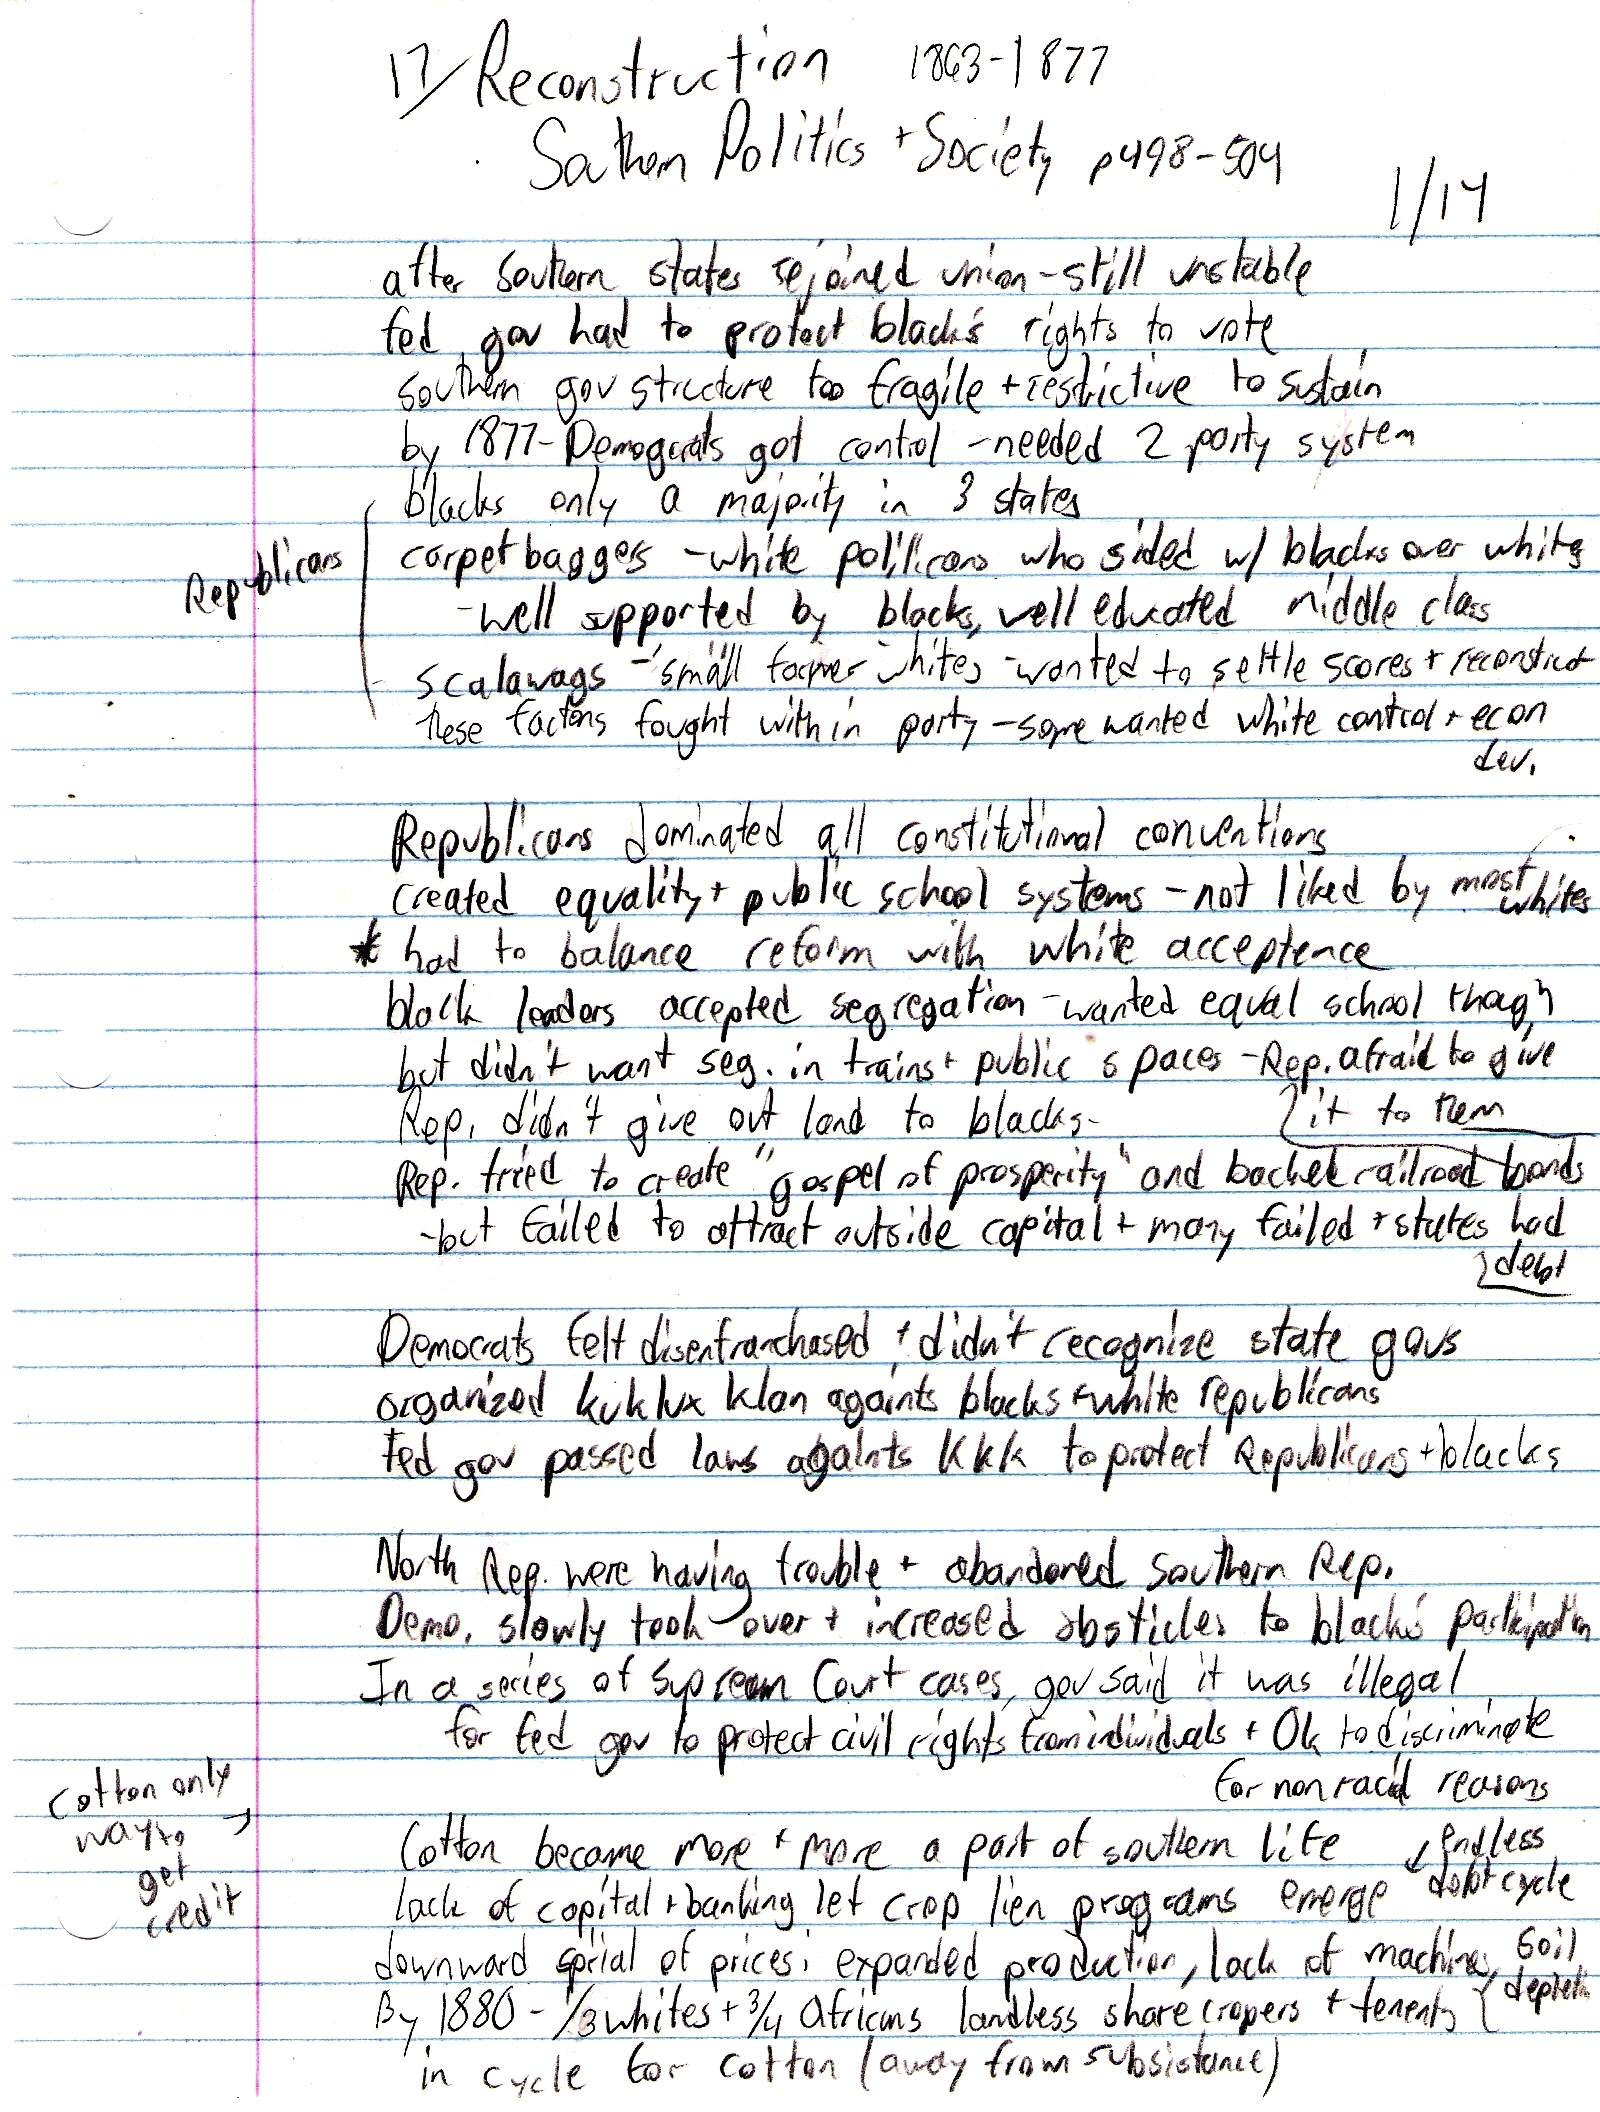 17/ Reconstruction 1863-1877
Southern Politics + Society p498-504
1/14
after southern states rejoined union - still unstable
fed gov had to protect black's rights to vote
southern gov structure too fragile + restrictive to sustain
by 1877 - Democrats got control - needed 2 party system
blacks only a majority in 3 states
Republicans
carpetbaggers - white politicans who sided w/ blacks over whites
- well supported by blacks, well educated middle class
scalawags - small farmer whites - wanted to settle scores + reconstruct
these factions fought within party - some wanted white control + econ
dev.
Republicans dominated all constitutional conventions
created equality + public school systems - not liked by most
whites
* had to balance reform with white acceptence
black leaders accepted segregation - wanted equal school though
but didn't want seg. in trains + public spaces - Rep. afraid to give
it to them
Rep. didn't give out land to blacks-
Rep. tried to create "gospel of prosperity" and backed railroad bonds
- but failed to attract outside capital + many failed + states had
debt
Democrats felt disenfranchased + didn't recognize state govs
organized kuklux klan againts blacks + white republicans
Fed gov passed laws againts KKK to protect Republicans + blacks
North Rep. were having trouble + abandoned southern Rep.
Demo. slowly took over + increased obsticles to black's participation
In a series of Supreem Court cases, gov said it was illegal
for fed gov to protect civil rights from individuals + Ok to discriminate
for nonracial reasons
cotton only
way to
get
credit
Cotton became more + more a part of southern life
endless
debt cycle
lack of capital + banking let crop lien programs emerge
downward sprial of prices: expanded production, lack of machines, soil
depletn
By 1880 - 1/3 whites + 3/4 Africans landless sharecropers + tenents
in cycle for cotton (away from subsistance)